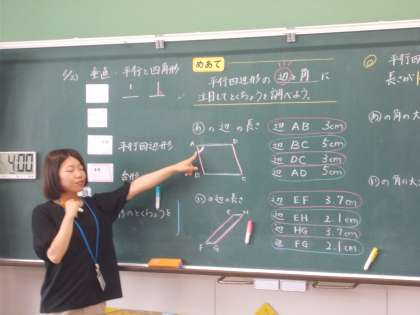 垂直・平行と四角形
めあて
平行四辺形の辺と角に
注目してとくちょうを調べよう。
平行四辺形
4:00
あの辺の長さ
A
D
B
辺 AB 3cm
辺 BC 5cm
辺 DC 3cm
辺 AD 5cm
いの辺の長さ
H
F G
辺 EF 3.7cm
辺 EH 2.1cm
辺 HG 3.7cm
辺 FG 2.1cm
のとくちょうを
平行四辺
長さが
あの角の大
いの角の大